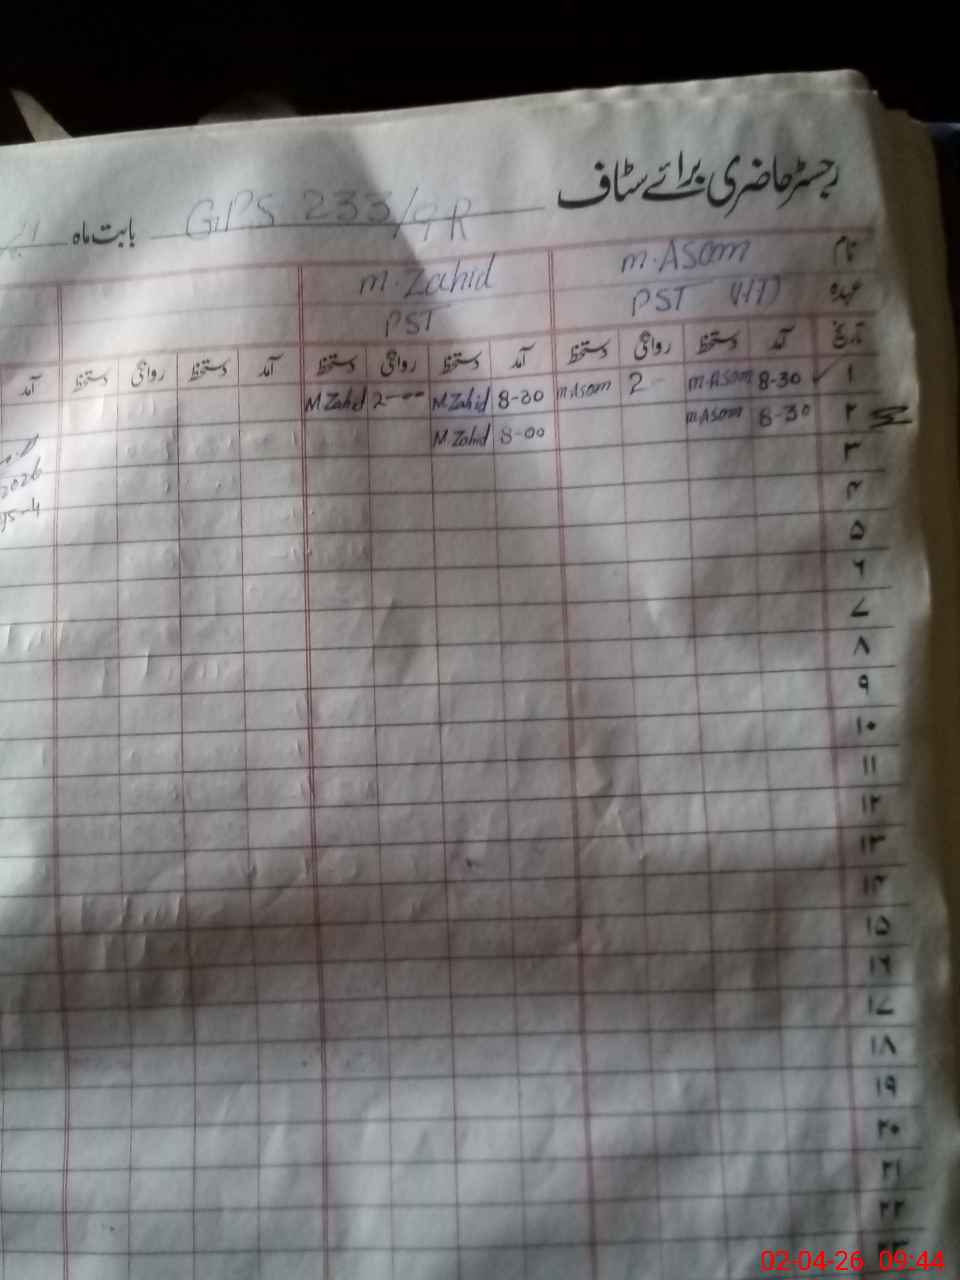 رجسٹر حاضری برائے سٹاف
GPS 233/9R بابت ماہ
نام m.Asam m.Zahid
عہدہ PST (HT) PST
تاریخ آمد دستخط روانگی دستخط آمد دستخط روانگی دستخط آمد دستخط روانگی دستخط آمد
۱ 8-30 m.Asam 2 m.Asam 8-00 M.Zahid 2-00 M.Zahid
۲ 8-30 m.Asam 8-00 M.Zahid
۳
2026
۴
۵
۶
۷
۸
۹
۱۰
۱۱
۱۲
۱۳
۱۴
۱۵
۱۶
۱۷
۱۸
۱۹
۲۰
۲۱
۲۲
۲۳
02-04-26 09:44